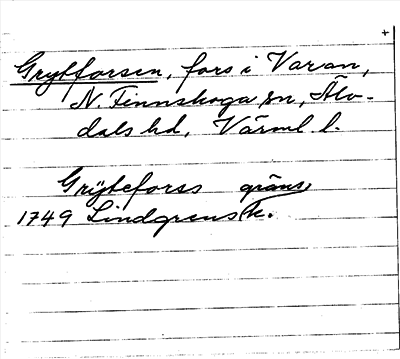 +
Grytforsen, fors i Varan,
N. Finnskoga sn, Älv-
dals hd, Värml. l.
Grÿteforss gräns
1749 Lindgrens k.